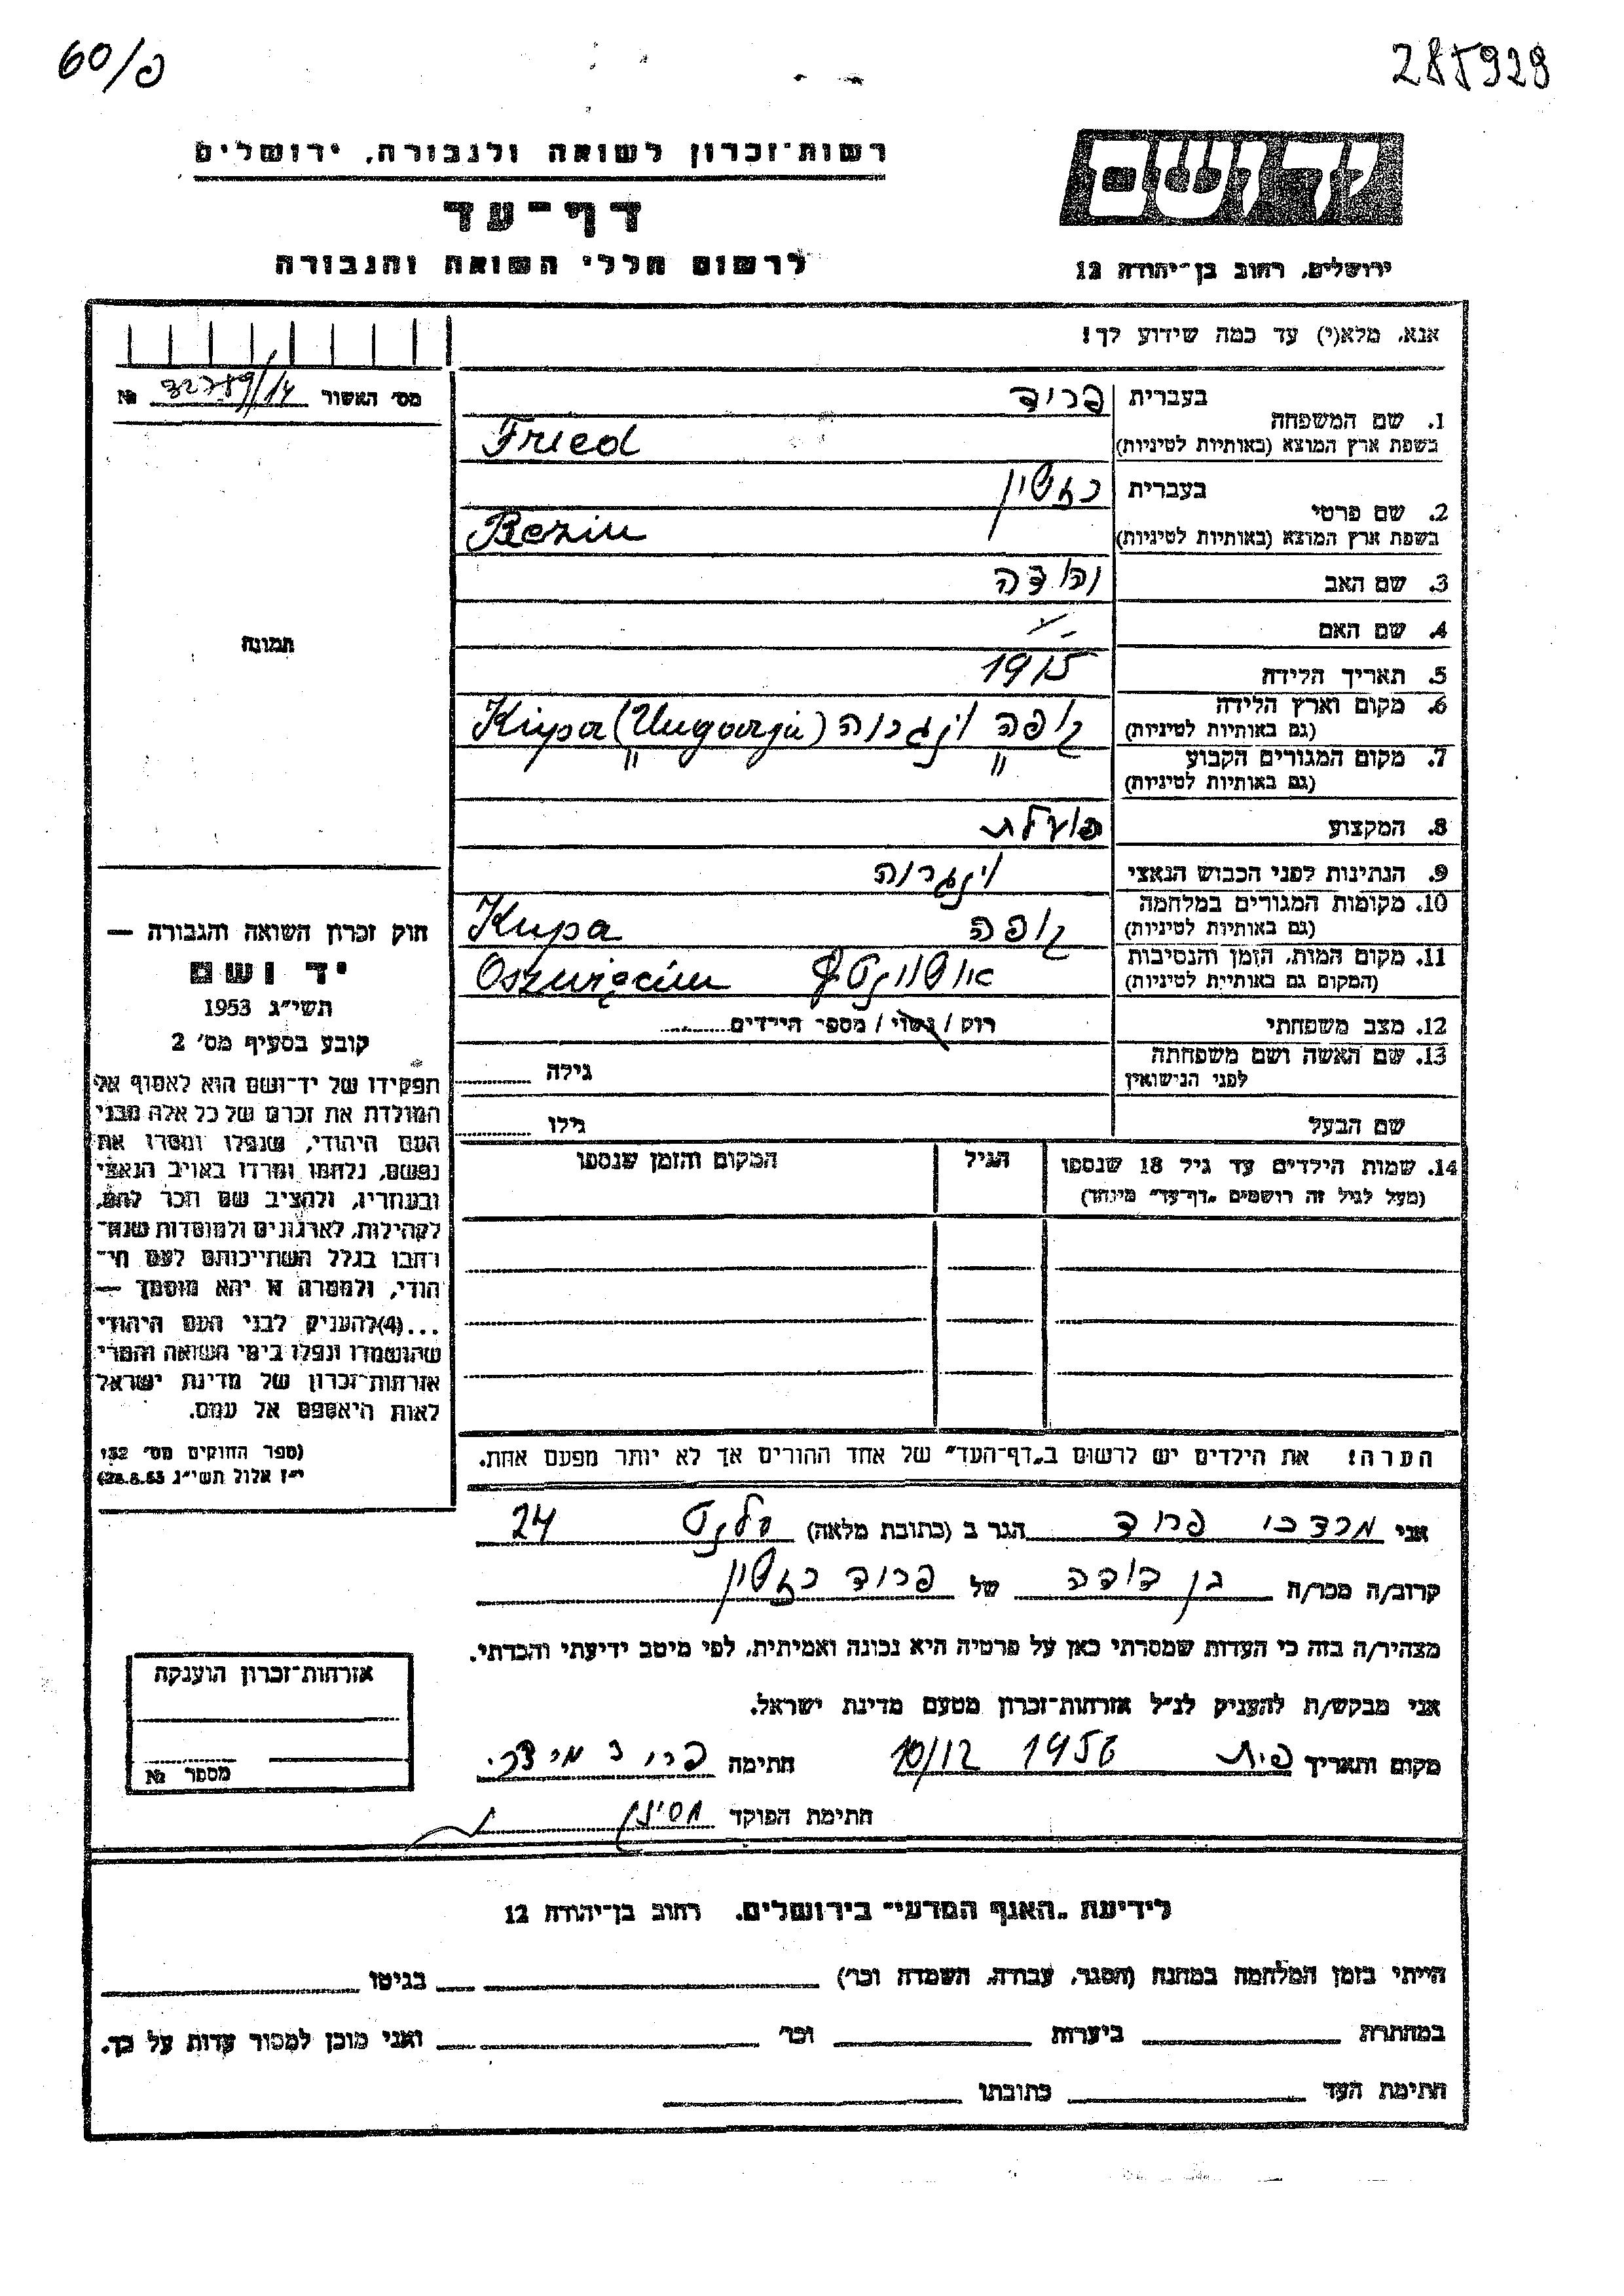 60/פ
285929
רשות־זכרון לשואה ולגבורה, ירושלים
דף־עד
לרשום חללי השואה והגבורה
יד ושם
ירושלים, רחוב בן־יהודה 12
אנא, מלא(י) עד כמה שידוע לך!
מס׳ האשור №
תמונה
1. שם המשפחה בעברית פריד
בשפת ארץ המוצא (באותיות לטיניות) Fried
2. שם פרטי בעברית
בשפת ארץ המוצא (באותיות לטיניות)
3. שם האב יהודה
4. שם האם
5. תאריך הלידה 1915
6. מקום וארץ הלידה
(גם באותיות לטיניות)
7. מקום המגורים הקבוע " "
(גם באותיות לטיניות)
8. המקצוע פועלת
9. הנתינות לפני הכבוש הנאצי
10. מקומות המגורים במלחמה קופה Kupa
(גם באותיות לטיניות)
11. מקום המות, הזמן והנסיבות Oszwięcim
(המקום גם באותיית לטיניות)
12. מצב משפחתי רוק / נשוי / מספר הילדים
13. שם האשה ושם משפחתה גילה
לפני הנישואין
שם הבעל גילו
14. שמות הילדים עד גיל 18 שנספו הגיל המקום והזמן שנספו
(מעל לגיל זה רושמים „דף־עד" מיוחד)
הערה! את הילדים יש לרשום ב„דף־העד" של אחד ההורים אך לא יותר מפעם אחת.
חוק זכרון השואה והגבורה —
יד ושם
תשי״ג 1953
קובע בסעיף מס׳ 2
תפקידו של יד־ושם הוא לאסוף אל
המולדת את זכרם של כל אלה מבני
העם היהודי, שנפלו ומסרו את
נפשם, נלחמו ומרדו באויב הנאצי
ובעוזריו, ולהציב שם וזכר להם,
לקהילות, לארגונים ולמוסדות שנח־
רבו בגלל השתייכותם לעם הי־
הודי, ולמטרה זו יהא מוסמך —
...(4)להעניק לבני העם היהודי
שהושמדו ונפלו בימי השואה והמרי
אזרחות־זכרון של מדינת ישראל
לאות היאספם אל עמם.
(ספר החוקים מס׳ 132
י״ז אלול תשי״ג 28.8.53)
אני מרדכי פריד הגר ב (כתובת מלאה) 24
קרוב/ה מכר/ה בן דודה של פריד
מצהיר/ה בזה כי העדות שמסרתי כאן על פרטיה היא נכונה ואמיתית, לפי מיטב ידיעתי והכרתי.
אני מבקש/ת להעניק לנ״ל אזרחות־זכרון מטעם מדינת ישראל.
מקום ותאריך 10/12 1956 חתימה
חתימת הפוקד
אזרחות־זכרון הוענקה
מספר №
לידיעת „האגף המדעי" בירושלים. רחוב בן־יהודה 12
הייתי בזמן המלחמה במחנה (הסגר, עבודה, השמדה וכו׳) בגיטו
במחתרת ביערות וכו׳ ואני מוכן למסור עדות על כך.
חתימת העד כתובתו